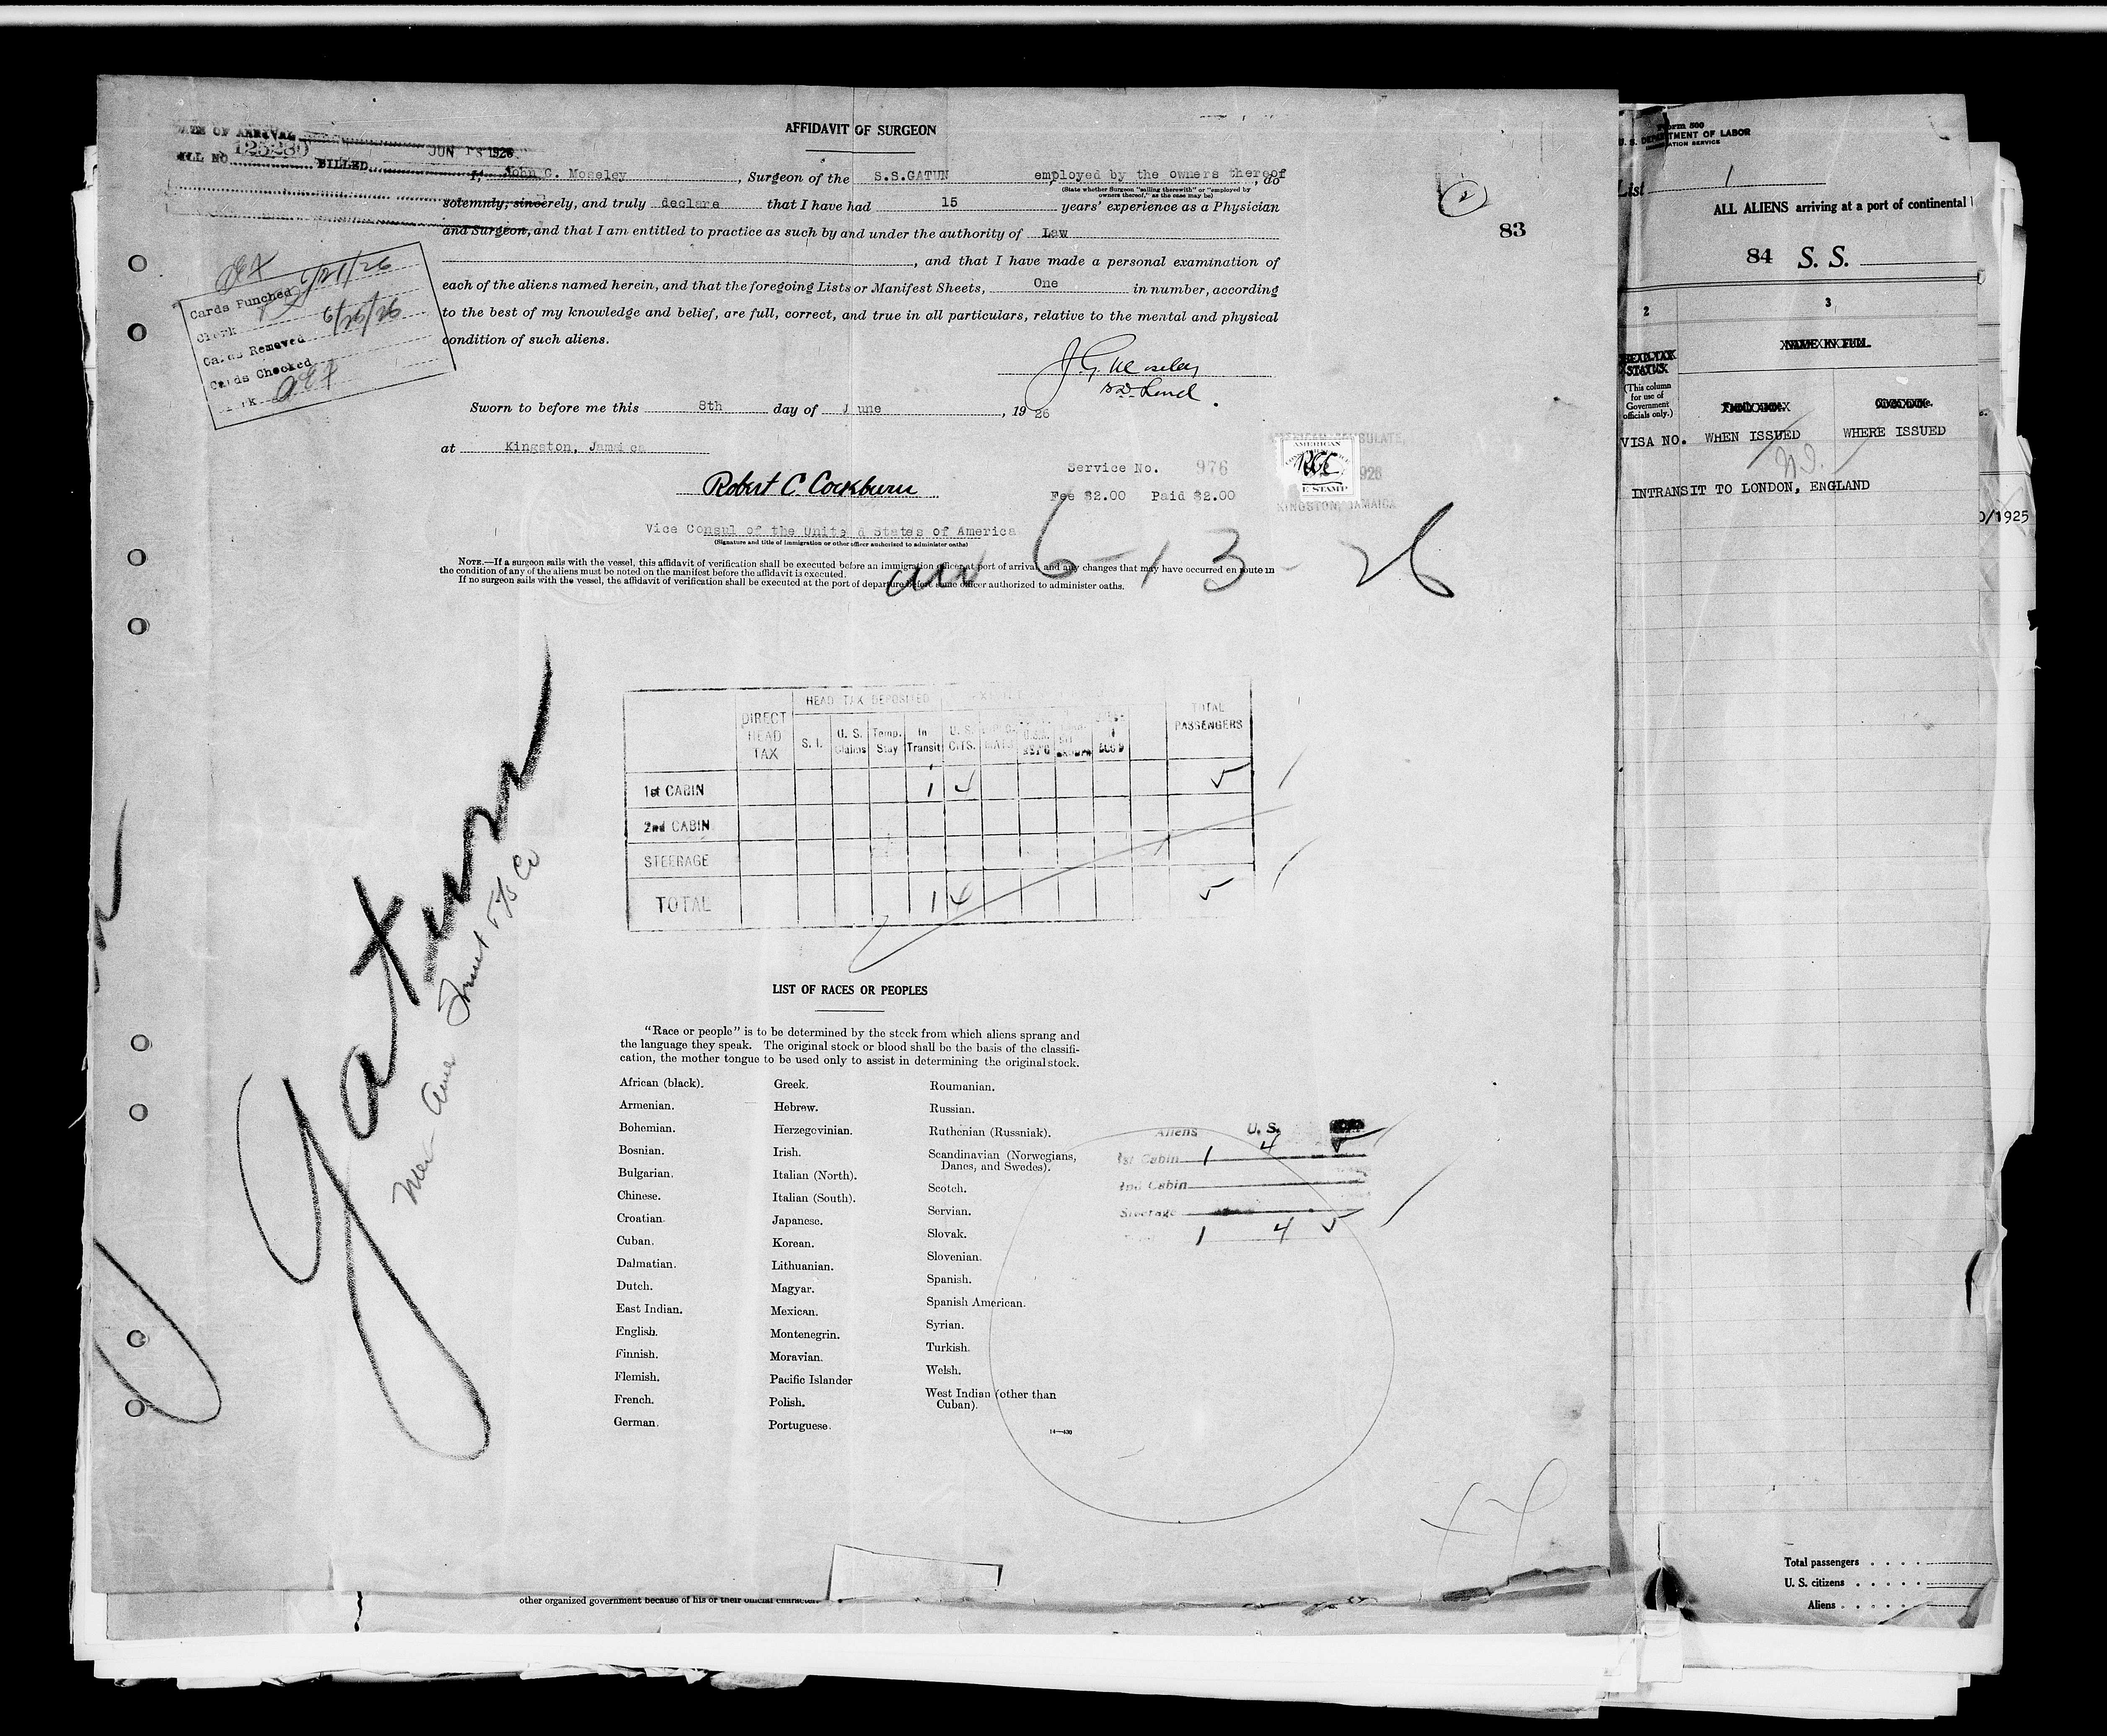 AFFIDAVIT OF SURGEON
DATE OF ARRIVAL
BILL NO. 125280 BILLED JUN 18 1926
I, John G. Moseley, Surgeon of the S.S.GATUN employed by the owners thereof, do
(State whether Surgeon "sailing therewith" or "employed by
owners thereof," as the case may be)
solemnly, sincerely, and truly declare that I have had 15 years' experience as a Physician
and Surgeon, and that I am entitled to practice as such by and under the authority of Law
, and that I have made a personal examination of
each of the aliens named herein, and that the foregoing Lists or Manifest Sheets, One in number, according
to the best of my knowledge and belief, are full, correct, and true in all particulars, relative to the mental and physical
condition of such aliens.
2
83
Cards Punched 6/21/26
Clerk
Cards Removed 6/26/26
Cards Checked
J. G. Moseley
Sworn to before me this 8th day of June, 1926
at Kingston, Jamaica
Robert C. Cockburn
Service No. 976
Fee $2.00 Paid $2.00
AMERICAN CONSULATE,
AMERICAN
RCC
1926
FEE STAMP
KINGSTON, JAMAICA
Vice Consul of the United States of America
(Signature and title of immigration or other officer authorized to administer oaths)
NOTE.—If a surgeon sails with the vessel, this affidavit of verification shall be executed before an immigration officer at port of arrival, and any changes that may have occurred en route in
the condition of any of the aliens must be noted on the manifest before the affidavit is executed.
If no surgeon sails with the vessel, the affidavit of verification shall be executed at the port of departure before some officer authorized to administer oaths.
arr 6-13-26
Gatun
Fruit S/S Co
HEAD TAX DEPOSITED
DIRECT HEAD TAX
S. I.
U. S. Claims
Temp. Stay
In Transit
U. S. CITS.
TOTAL PASSENGERS
1st CABIN 1 4 5
2nd CABIN
STEERAGE
TOTAL 1 4 5
LIST OF RACES OR PEOPLES
"Race or people" is to be determined by the stock from which aliens sprang and
the language they speak. The original stock or blood shall be the basis of the classifi-
cation, the mother tongue to be used only to assist in determining the original stock.
African (black).
Armenian.
Bohemian.
Bosnian.
Bulgarian.
Chinese.
Croatian.
Cuban.
Dalmatian.
Dutch.
East Indian.
English.
Finnish.
Flemish.
French.
German.
Greek.
Hebrew.
Herzegovinian.
Irish.
Italian (North).
Italian (South).
Japanese.
Korean.
Lithuanian.
Magyar.
Mexican.
Montenegrin.
Moravian.
Pacific Islander
Polish.
Portuguese.
Roumanian.
Russian.
Ruthenian (Russniak).
Scandinavian (Norwegians,
Danes, and Swedes).
Scotch.
Servian.
Slovak.
Slovenian.
Spanish.
Spanish American.
Syrian.
Turkish.
Welsh.
West Indian (other than
Cuban).
14—430
Aliens U. S.
1st Cabin 1 4 5
2nd Cabin
Steerage
1 4 5
other organized government because of his or their official character
Form 500
U. S. DEPARTMENT OF LABOR
IMMIGRATION SERVICE
List 1
ALL ALIENS arriving at a port of continental
84 S. S.
2
3
HEAD-TAX
STATUS
(This column
for use of
Government
officials only.)
NAME IN FULL
VISA NO. WHEN ISSUED WHERE ISSUED
INTRANSIT TO LONDON, ENGLAND
0/1925
Total passengers
U. S. citizens
Aliens